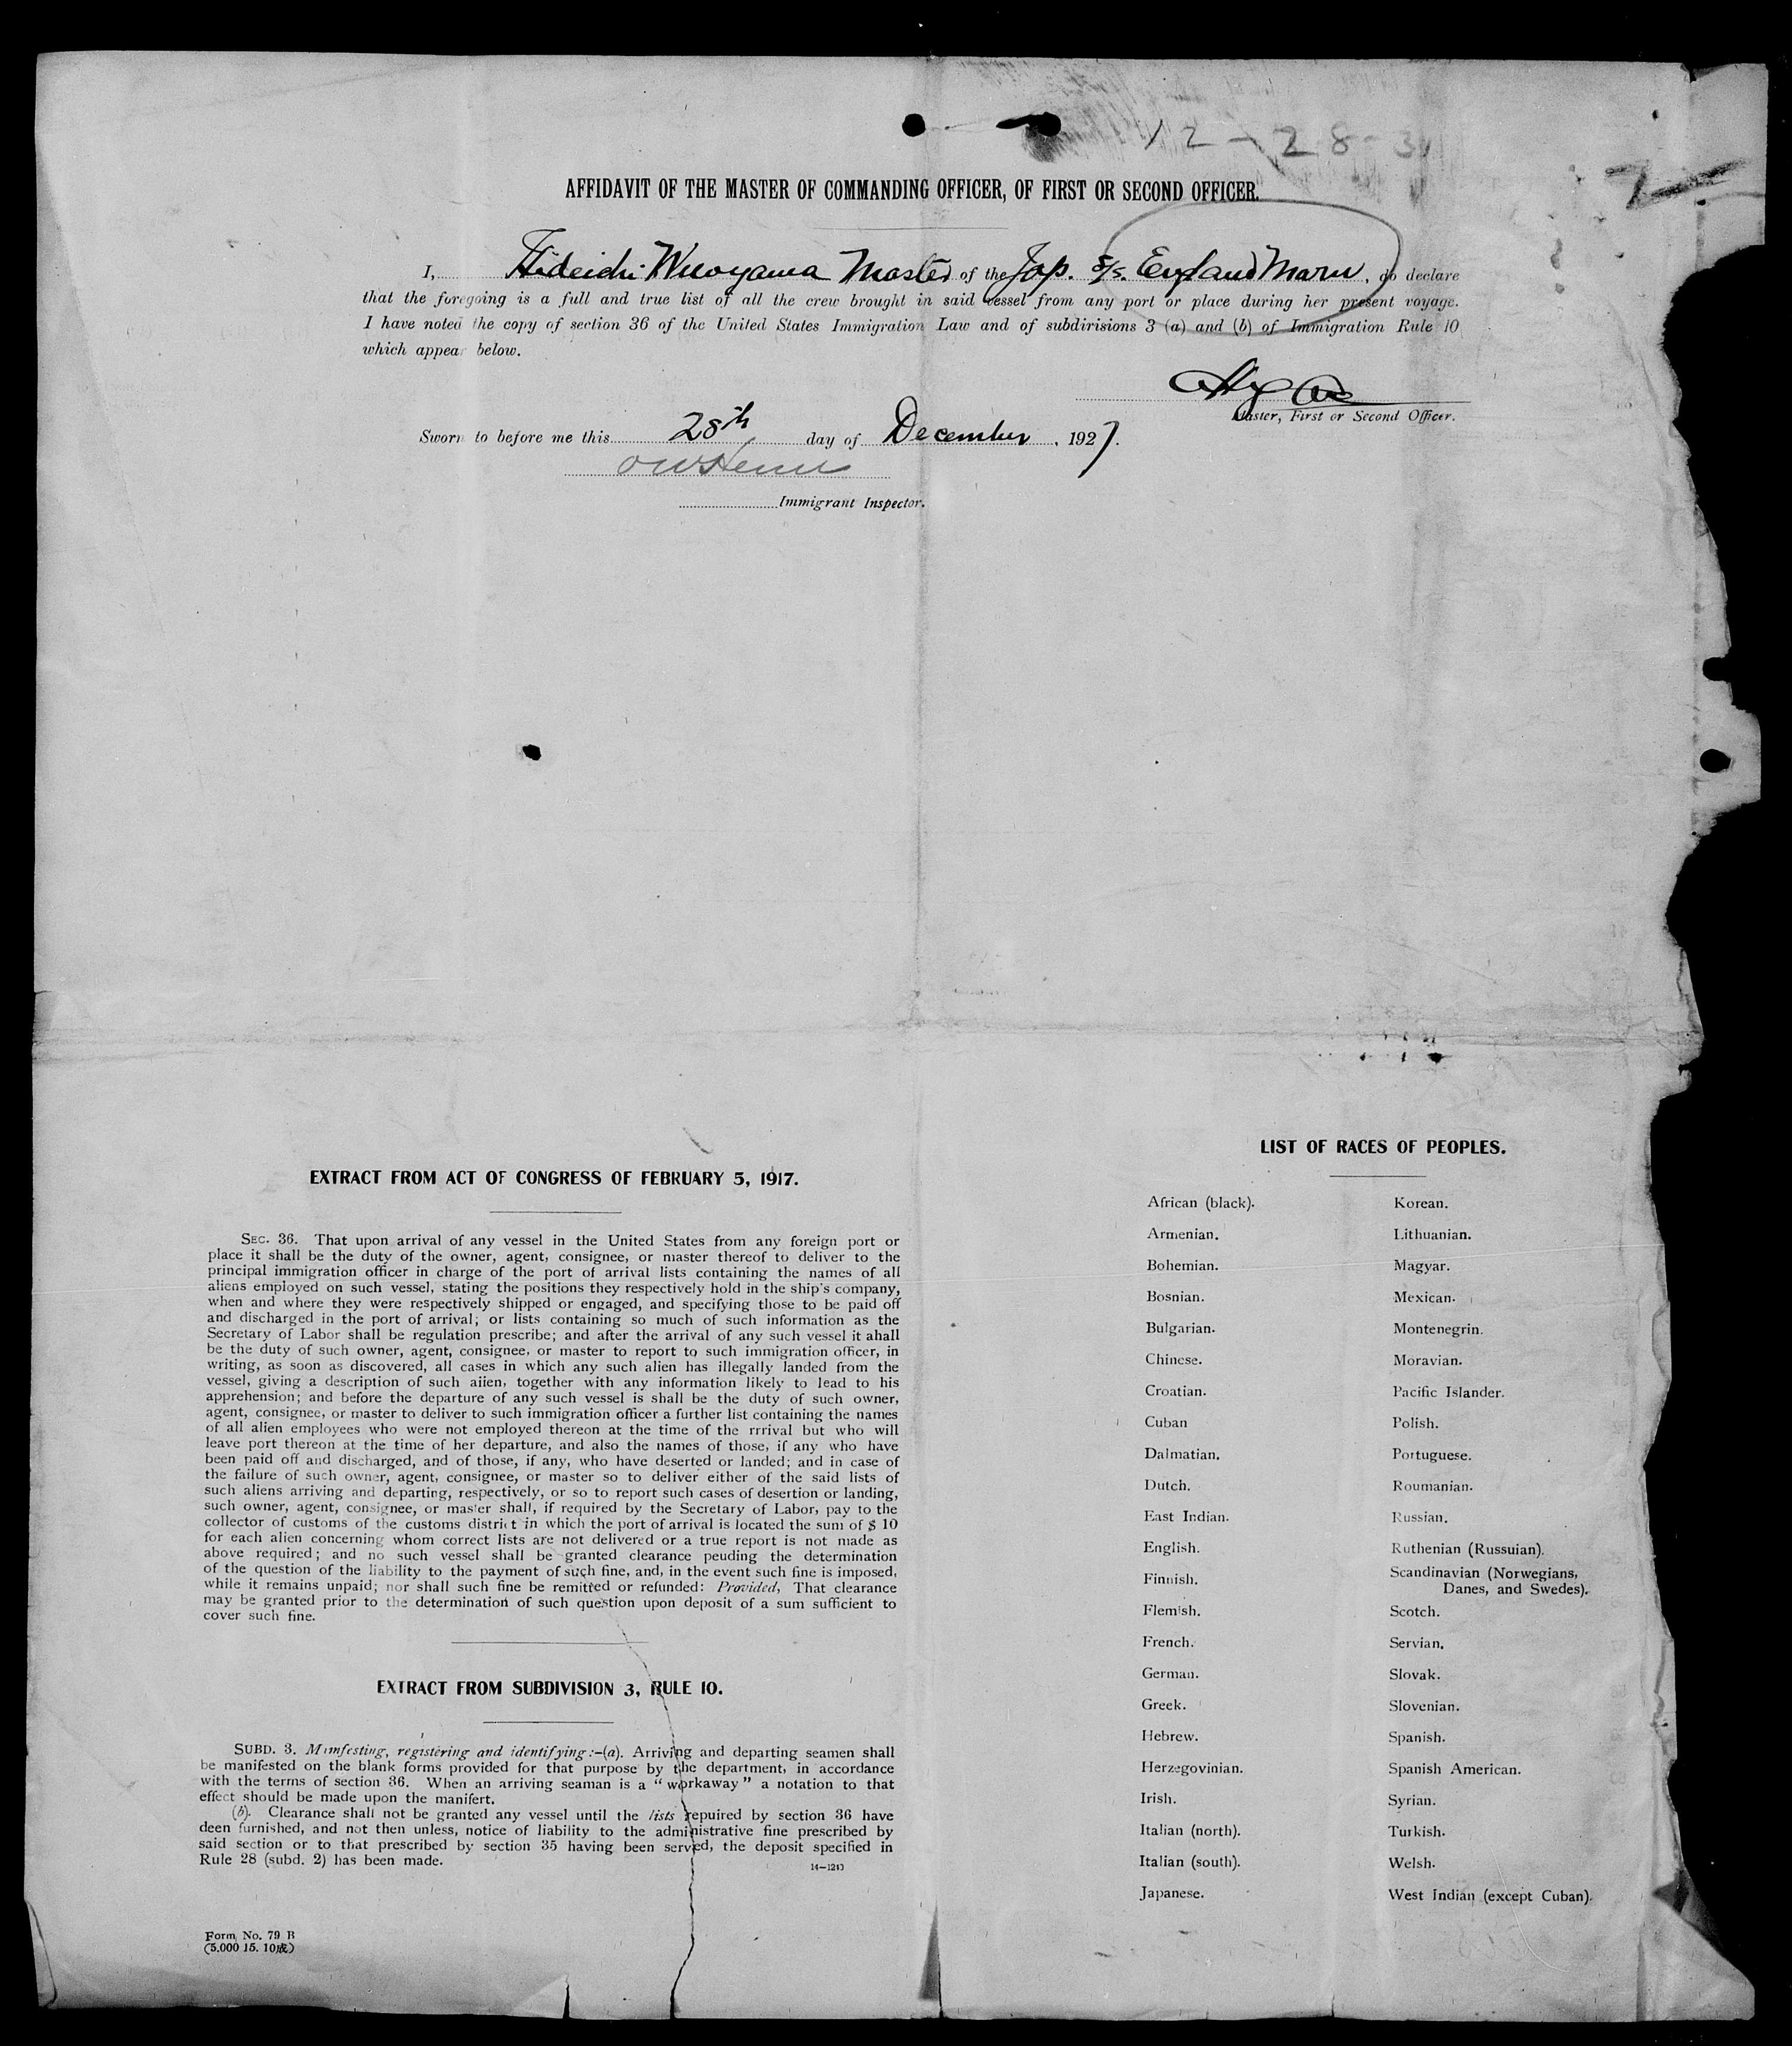 12-28-31
7
AFFIDAVIT OF THE MASTER OF COMMANDING OFFICER, OF FIRST OR SECOND OFFICER.
I, Hideichi Master of the Jap. S/S. England Maru, do declare
that the foregoing is a full and true list of all the crew brought in said vessel from any port or place during her present voyage.
I have noted the copy of section 36 of the United States Immigration Law and of subdirisions 3 (a) and (b) of Immigration Rule 10
which appear below.
Master, First or Second Officer.
Sworn to before me this 28th day of December, 1927.
Immigrant Inspector.
EXTRACT FROM ACT OF CONGRESS OF FEBRUARY 5, 1917.
SEC. 36. That upon arrival of any vessel in the United States from any foreign port or
place it shall be the duty of the owner, agent, consignee, or master thereof to deliver to the
principal immigration officer in charge of the port of arrival lists containing the names of all
aliens employed on such vessel, stating the positions they respectively hold in the ship's company,
when and where they were respectively shipped or engaged, and specifying those to be paid off
and discharged in the port of arrival; or lists containing so much of such information as the
Secretary of Labor shall be regulation prescribe; and after the arrival of any such vessel it ahall
be the duty of such owner, agent, consignee, or master to report to such immigration officer, in
writing, as soon as discovered, all cases in which any such alien has illegally landed from the
vessel, giving a description of such aiien, together with any information likely to lead to his
apprehension; and before the departure of any such vessel is shall be the duty of such owner,
agent, consignee, or master to deliver to such immigration officer a further list containing the names
of all alien employees who were not employed thereon at the time of the rrrival but who will
leave port thereon at the time of her departure, and also the names of those, if any who have
been paid off and discharged, and of those, if any, who have deserted or landed; and in case of
the failure of such owner, agent, consignee, or master so to deliver either of the said lists of
such aliens arriving and departing, respectively, or so to report such cases of desertion or landing,
such owner, agent, consignee, or master shall, if required by the Secretary of Labor, pay to the
collector of customs of the customs district in which the port of arrival is located the sum of $ 10
for each alien concerning whom correct lists are not delivered or a true report is not made as
above required; and no such vessel shall be granted clearance peuding the determination
of the question of the liability to the payment of such fine, and, in the event such fine is imposed,
while it remains unpaid; nor shall such fine be remitted or refunded: Provided, That clearance
may be granted prior to the determination of such question upon deposit of a sum sufficient to
cover such fine.
EXTRACT FROM SUBDIVISION 3, RULE 10.
SUBD. 3. Mamfesting, registering and identifying:-(a). Arriving and departing seamen shall
be manifested on the blank forms provided for that purpose by the department, in accordance
with the terms of section 36. When an arriving seaman is a "workaway" a notation to that
effect should be made upon the manifert.
(b). Clearance shall not be granted any vessel until the lists repuired by section 36 have
deen furnished, and not then unless, notice of liability to the administrative fine prescribed by
said section or to that prescribed by section 35 having been served, the deposit specified in
Rule 28 (subd. 2) has been made.
Form No. 79 B
(5.000 15. 10成)
LIST OF RACES OF PEOPLES.
African (black).
Armenian.
Bohemian.
Bosnian.
Bulgarian.
Chinese.
Croatian.
Cuban
Dalmatian.
Dutch.
East Indian.
English.
Finnish.
Flemish.
French.
German.
Greek.
Hebrew.
Herzegovinian.
Irish.
Italian (north).
Italian (south).
Japanese.
Korean.
Lithuanian.
Magyar.
Mexican.
Montenegrin.
Moravian.
Pacific Islander.
Polish.
Portuguese.
Roumanian.
Russian.
Ruthenian (Russuian).
Scandinavian (Norwegians,
Danes, and Swedes).
Scotch.
Servian.
Slovak.
Slovenian.
Spanish.
Spanish American.
Syrian.
Turkish.
Welsh.
West Indian (except Cuban).